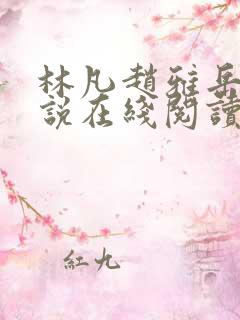 林凡趙雅岳
說在綫閱讀
紅九